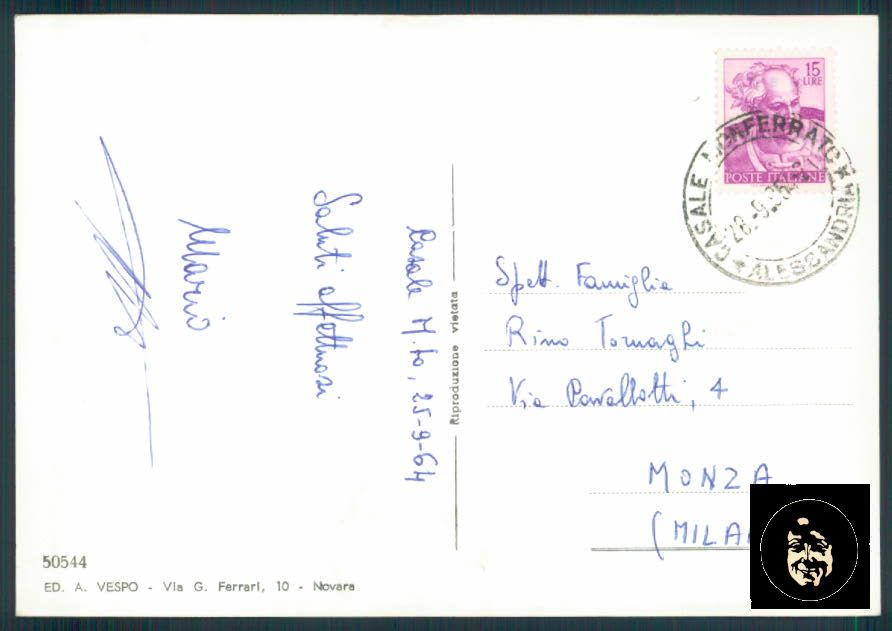 Casale M.to, 25-9-64
Saluti affettuosi
Mario
50544
ED. A. VESPO - Via G. Ferrari, 10 - Novara
Riproduzione vietata
15
LIRE
POSTE ITALIANE
CASALE MONFERRATO
ALESSANDRIA
28.-9.
Spett. Famiglia
Rino Tornaghi
Via Cavallotti, 4
MONZA
(MILA